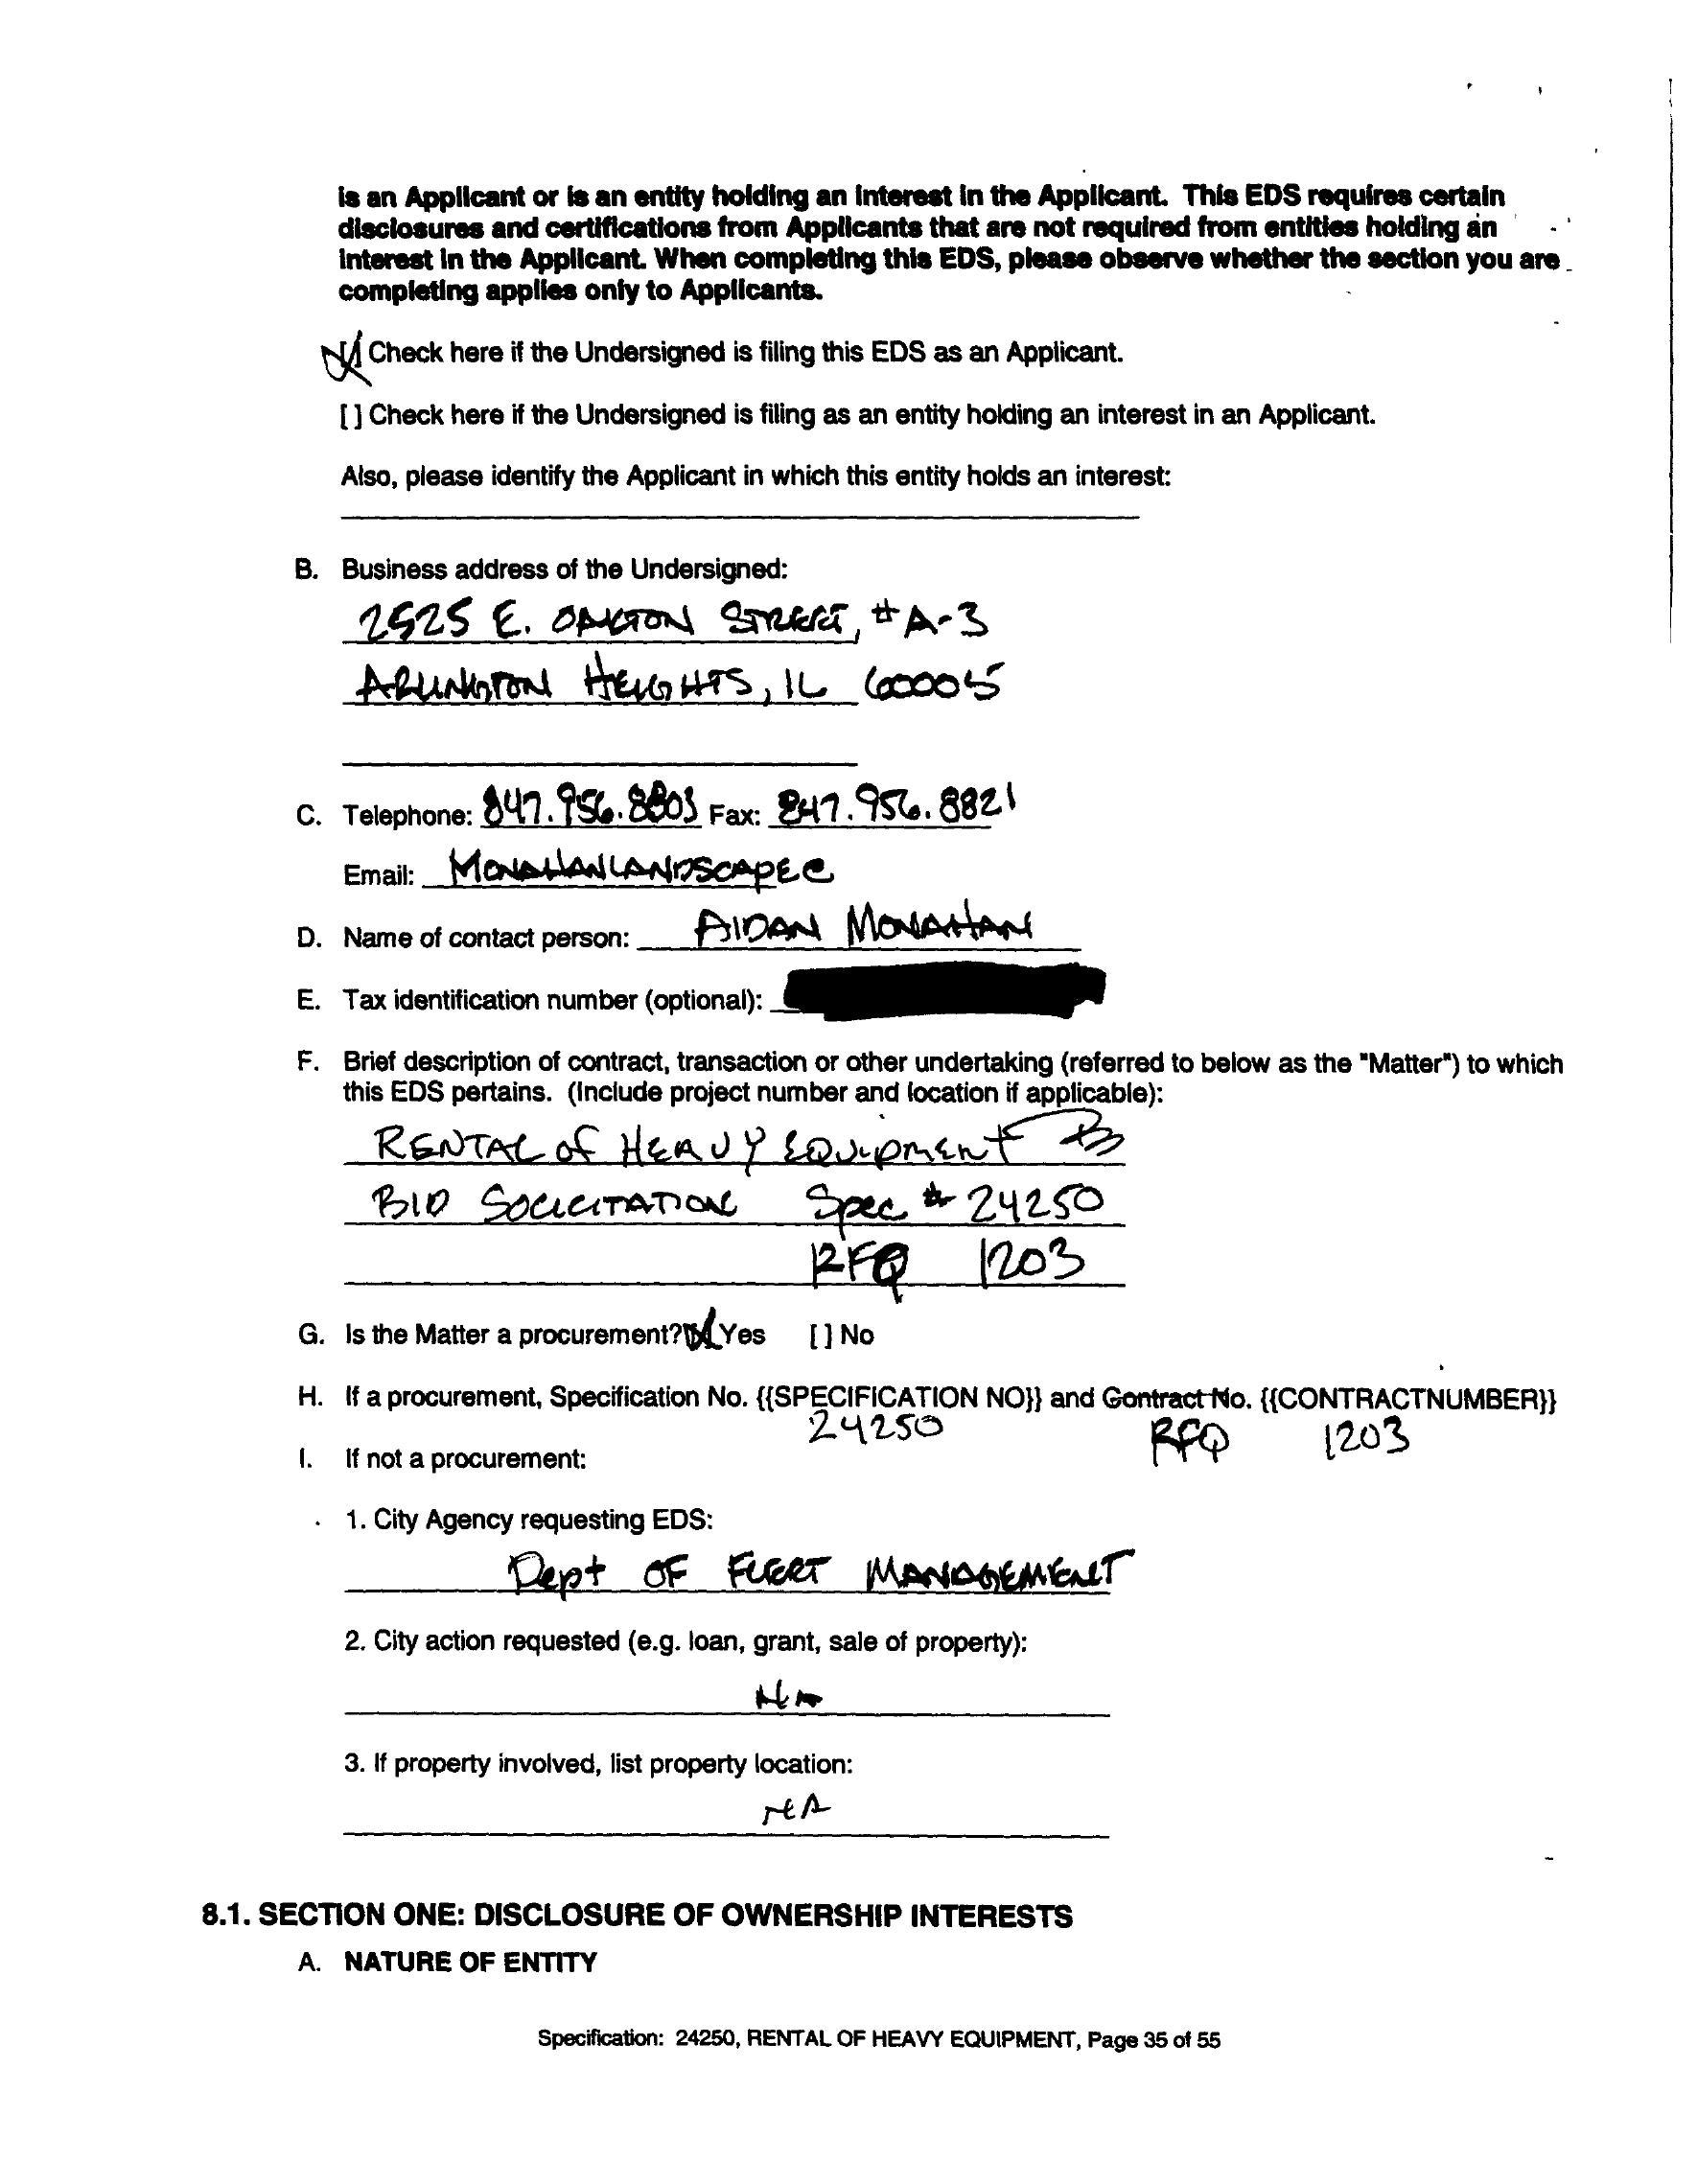 is an Applicant or is an entity holding an interest in the Applicant. This EDS requires certain
disclosures and certifications from Applicants that are not required from entities holding an
interest in the Applicant. When completing this EDS, please observe whether the section you are
completing applies only to Applicants.
[ ] Check here if the Undersigned is filing this EDS as an Applicant.
[ ] Check here if the Undersigned is filing as an entity holding an interest in an Applicant.
Also, please identify the Applicant in which this entity holds an interest:
B. Business address of the Undersigned:
2525 E. OAKTON STREET, #A-3
ARLINGTON HEIGHTS, IL 60005
C. Telephone: 847.956.8803 Fax: 847.956.8821
Email: MONAHANLANDSCAPEC
D. Name of contact person: AIDAN MONAHAN
E. Tax identification number (optional):
F. Brief description of contract, transaction or other undertaking (referred to below as the "Matter") to which
this EDS pertains. (Include project number and location if applicable):
RENTAL of HEAVY EQUIPMENT
BID SOLICITATION Spec # 24250
RFQ 1203
G. Is the Matter a procurement? [X] Yes [ ] No
H. If a procurement, Specification No. {{SPECIFICATION NO}} and Contract No. {{CONTRACTNUMBER}}
24250 RFQ 1203
I. If not a procurement:
1. City Agency requesting EDS:
Dept OF FLEET MANAGEMENT
2. City action requested (e.g. loan, grant, sale of property):
NA
3. If property involved, list property location:
NA
8.1. SECTION ONE: DISCLOSURE OF OWNERSHIP INTERESTS
A. NATURE OF ENTITY
Specification: 24250, RENTAL OF HEAVY EQUIPMENT, Page 35 of 55